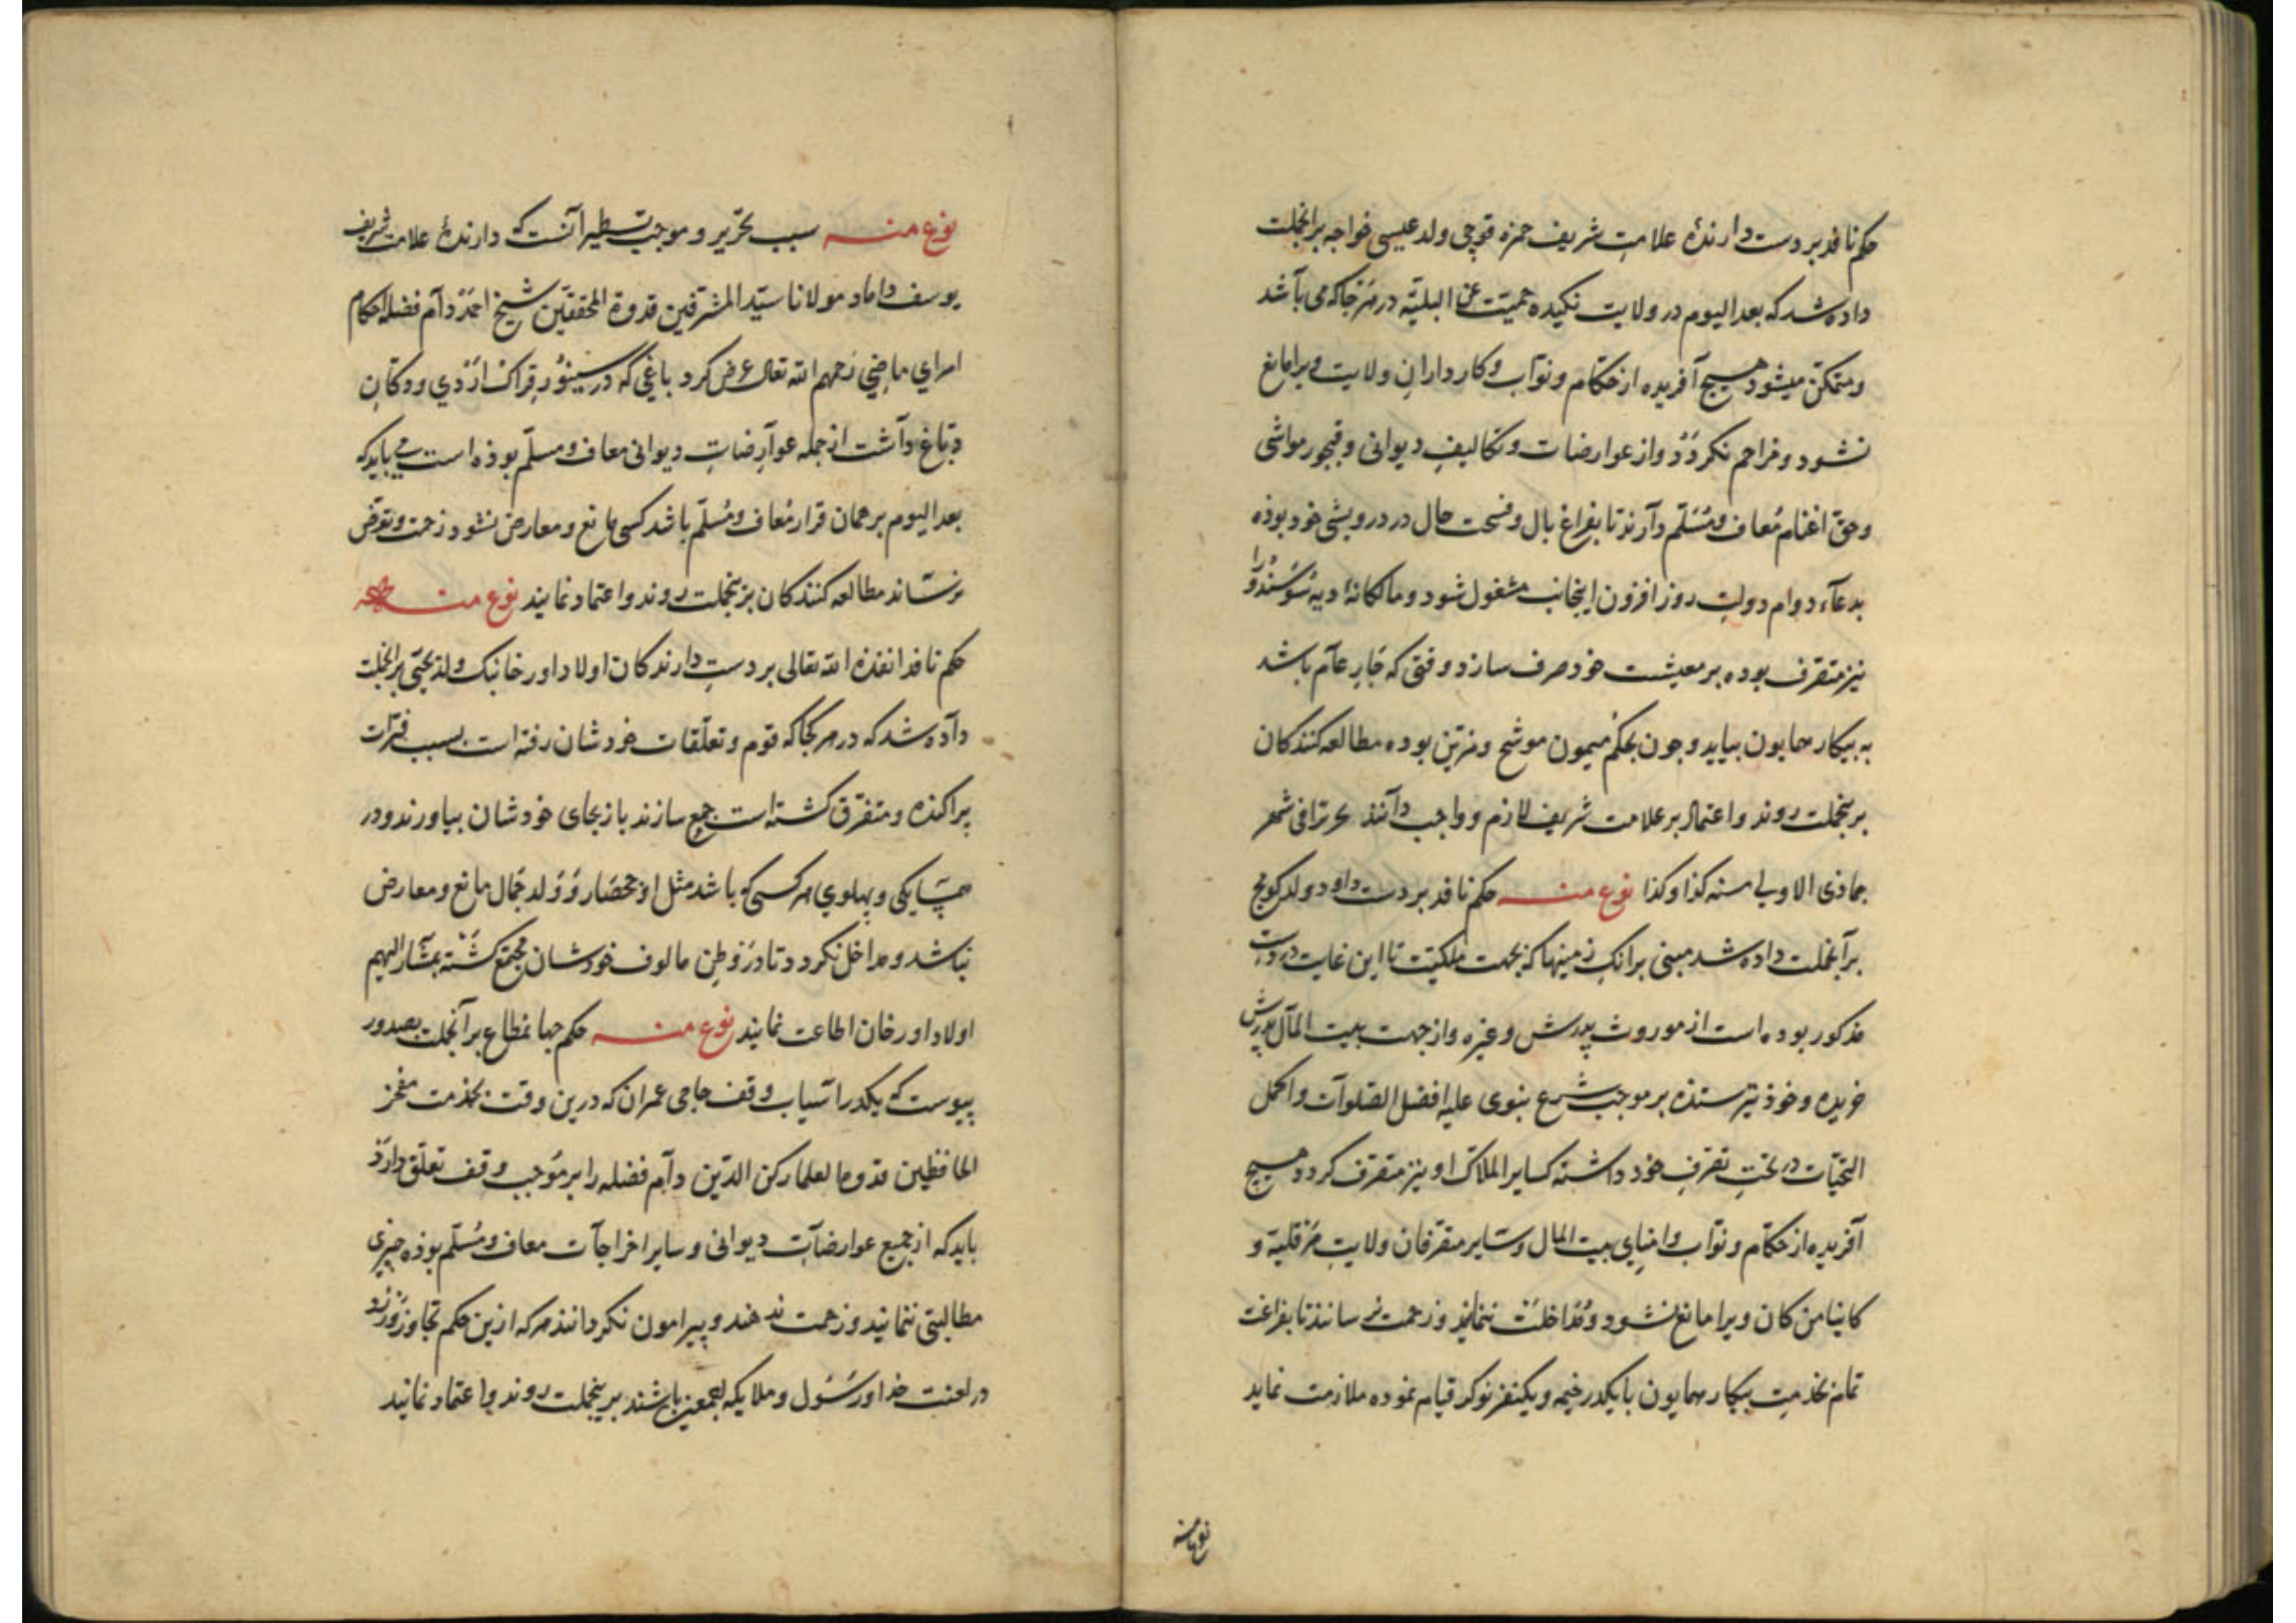 حکم نافذ بر دست دارندهٔ علامت شریف حمزه قوچی ولد عیسی خواجه برانجملت
داده شد که بعد الیوم در ولایت نکیده حمیت عن البلیّة در هر جا که می باشد
و متمکن میشود هیچ آفریده از حکّام و نوّاب و کارداران ولایت ویرا مانع
نشود و مزاحم نکردد و از عوارضات و تکالیف دیوانی و قبچور مواشی
و حق اغنام مُعاف و مُسَلّم دارند تا بفراغ بال و فسحت حال در درویشی خود بوذه
بدعاء دوام دولت روز افزون اینجانب مشغول شود و مالکانهٔ دیه سُوسُندُو را
نیز متصرف بوده بر معیشت خود صرف سازد و وقتی که جار عام باشد
به بیکار همایون بیاید و چون بحکم میمون موشح و مزین بوده مطالعه کنندکان
برینجملت روند و اعتماد بر علامت شریف لازم و واجب دانند تحریرا فی شهر
جماذی الاولی سنه کذا و کذا نوع منه حکم نافذ بر دست داود ولد کوبج
برانجملت داده شد مبنی بر انک زمینها که بجهت ملکیت تا این غایت در دست
مذکور بوده است از موروث پدرش و غیره و از جهت بیت المال پدرش
خریده و خوذ نیز ستذه بر موجب شرع نبوی علیه افضل الصلوات و اکمل
التحیّات در تحت تصرف خود داشته کسایر املاک او نیز متصرف کردد هیچ
آفریده از حکّام و نوّاب و امنای بیت المال و سایر متصرفان ولایت قلیة و
کاینا من کان ویرا مانع نشود و مُداخلت ننماید و زحمت نرسانند تا بفراغت
تمام بخدمت بیکار همایون با یکدر خیمه و یکنفر نوکر قیام نموده ملازمت نماید
نوع منه
نوع منه سبب تحریر و موجب تسطیر آنست که دارندهٔ علامت شریف
یوسف داماد مولانا سیّد المشرّفین قدوة المحققین شیخ احمد دام فضله احکام
امرای ماضی رحمهم الله تعالی عرض کرد باغی که در سینور قراک ازدی و دکان
دبّاغ داشت از جمله عوارضات دیوانی معاف و مسلّم بوذه است می باید که
بعد الیوم بر همان قرار مُعاف و مُسلّم باشد کسی مانع و معارض نشود زحمت و تعرض
نرساند مطالعه کنندکان برینجملت روند و اعتماد نمایند نوع منه
حکم نافذ انفذه الله تعالی بر دست دارندکان اولاد اورخانبک ولد یحیی برانجملت
داده شد که در هر کجا که قوم و تعلّقات خودشان رفته است بسبب فترات
پراکنده و متفرق کشته است جمع سازند باز بجای خودشان بیاورند و در
همسایکی و پهلوی هر کسی که باشد مثل اوذ حصار و ولد جمال مانع و معارض
نباشد و مداخل نکردد تا در وطن مالوف خودشان مجتمع کشته بمشار الیهم
اولاد اورخان اطاعت نمایند نوع منه حکم جهانمطاع برانجملت بصدور
پیوست که یکدر آسیاب وقف حاجی عمران که درین وقت بخدمت مفخر
الحافظین قدوة العلما رکن الدّین دام فضله را بر موجب وقف تعلّق دارد
باید که از جمیع عوارضات دیوانی و سایر اخراجات معاف و مُسلّم بوذه چیزی
مطالبتی ننمایند و زحمت ندهند و پیرامون نکردانند هر که ازین حکم تجاوز ورزد
در لعنت خدا و رسول و ملایکه اجمعین باشند برینجملت روند و اعتماد نمایند